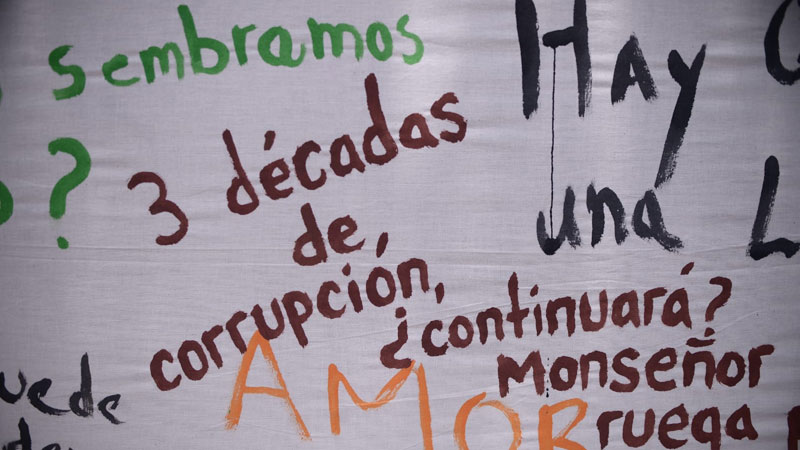 sembramos
?
3 décadas
de
corrupción,
¿continuará?
Monseñor
ruega
AMOR
Hay
una